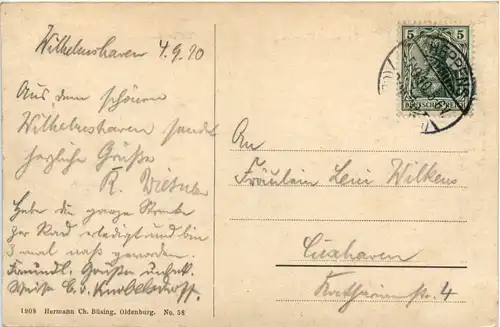 Wilhelmshaven 4.9.10
Aus dem schönen
Wilhelmshaven sendet
herzliche Grüße
R.
Habe die ganze Strecke
per Rad erledigt und bin
3 mal naß geworden.
Freundl. Grüße
C. v. Knobelsdorff.
1908 Hermann Ch. Büsing, Oldenburg. No. 58
5 5
HEPPENS
DEUTSCHES REICH
An
Fräulein Leni Wilkens
Cuxhaven
4